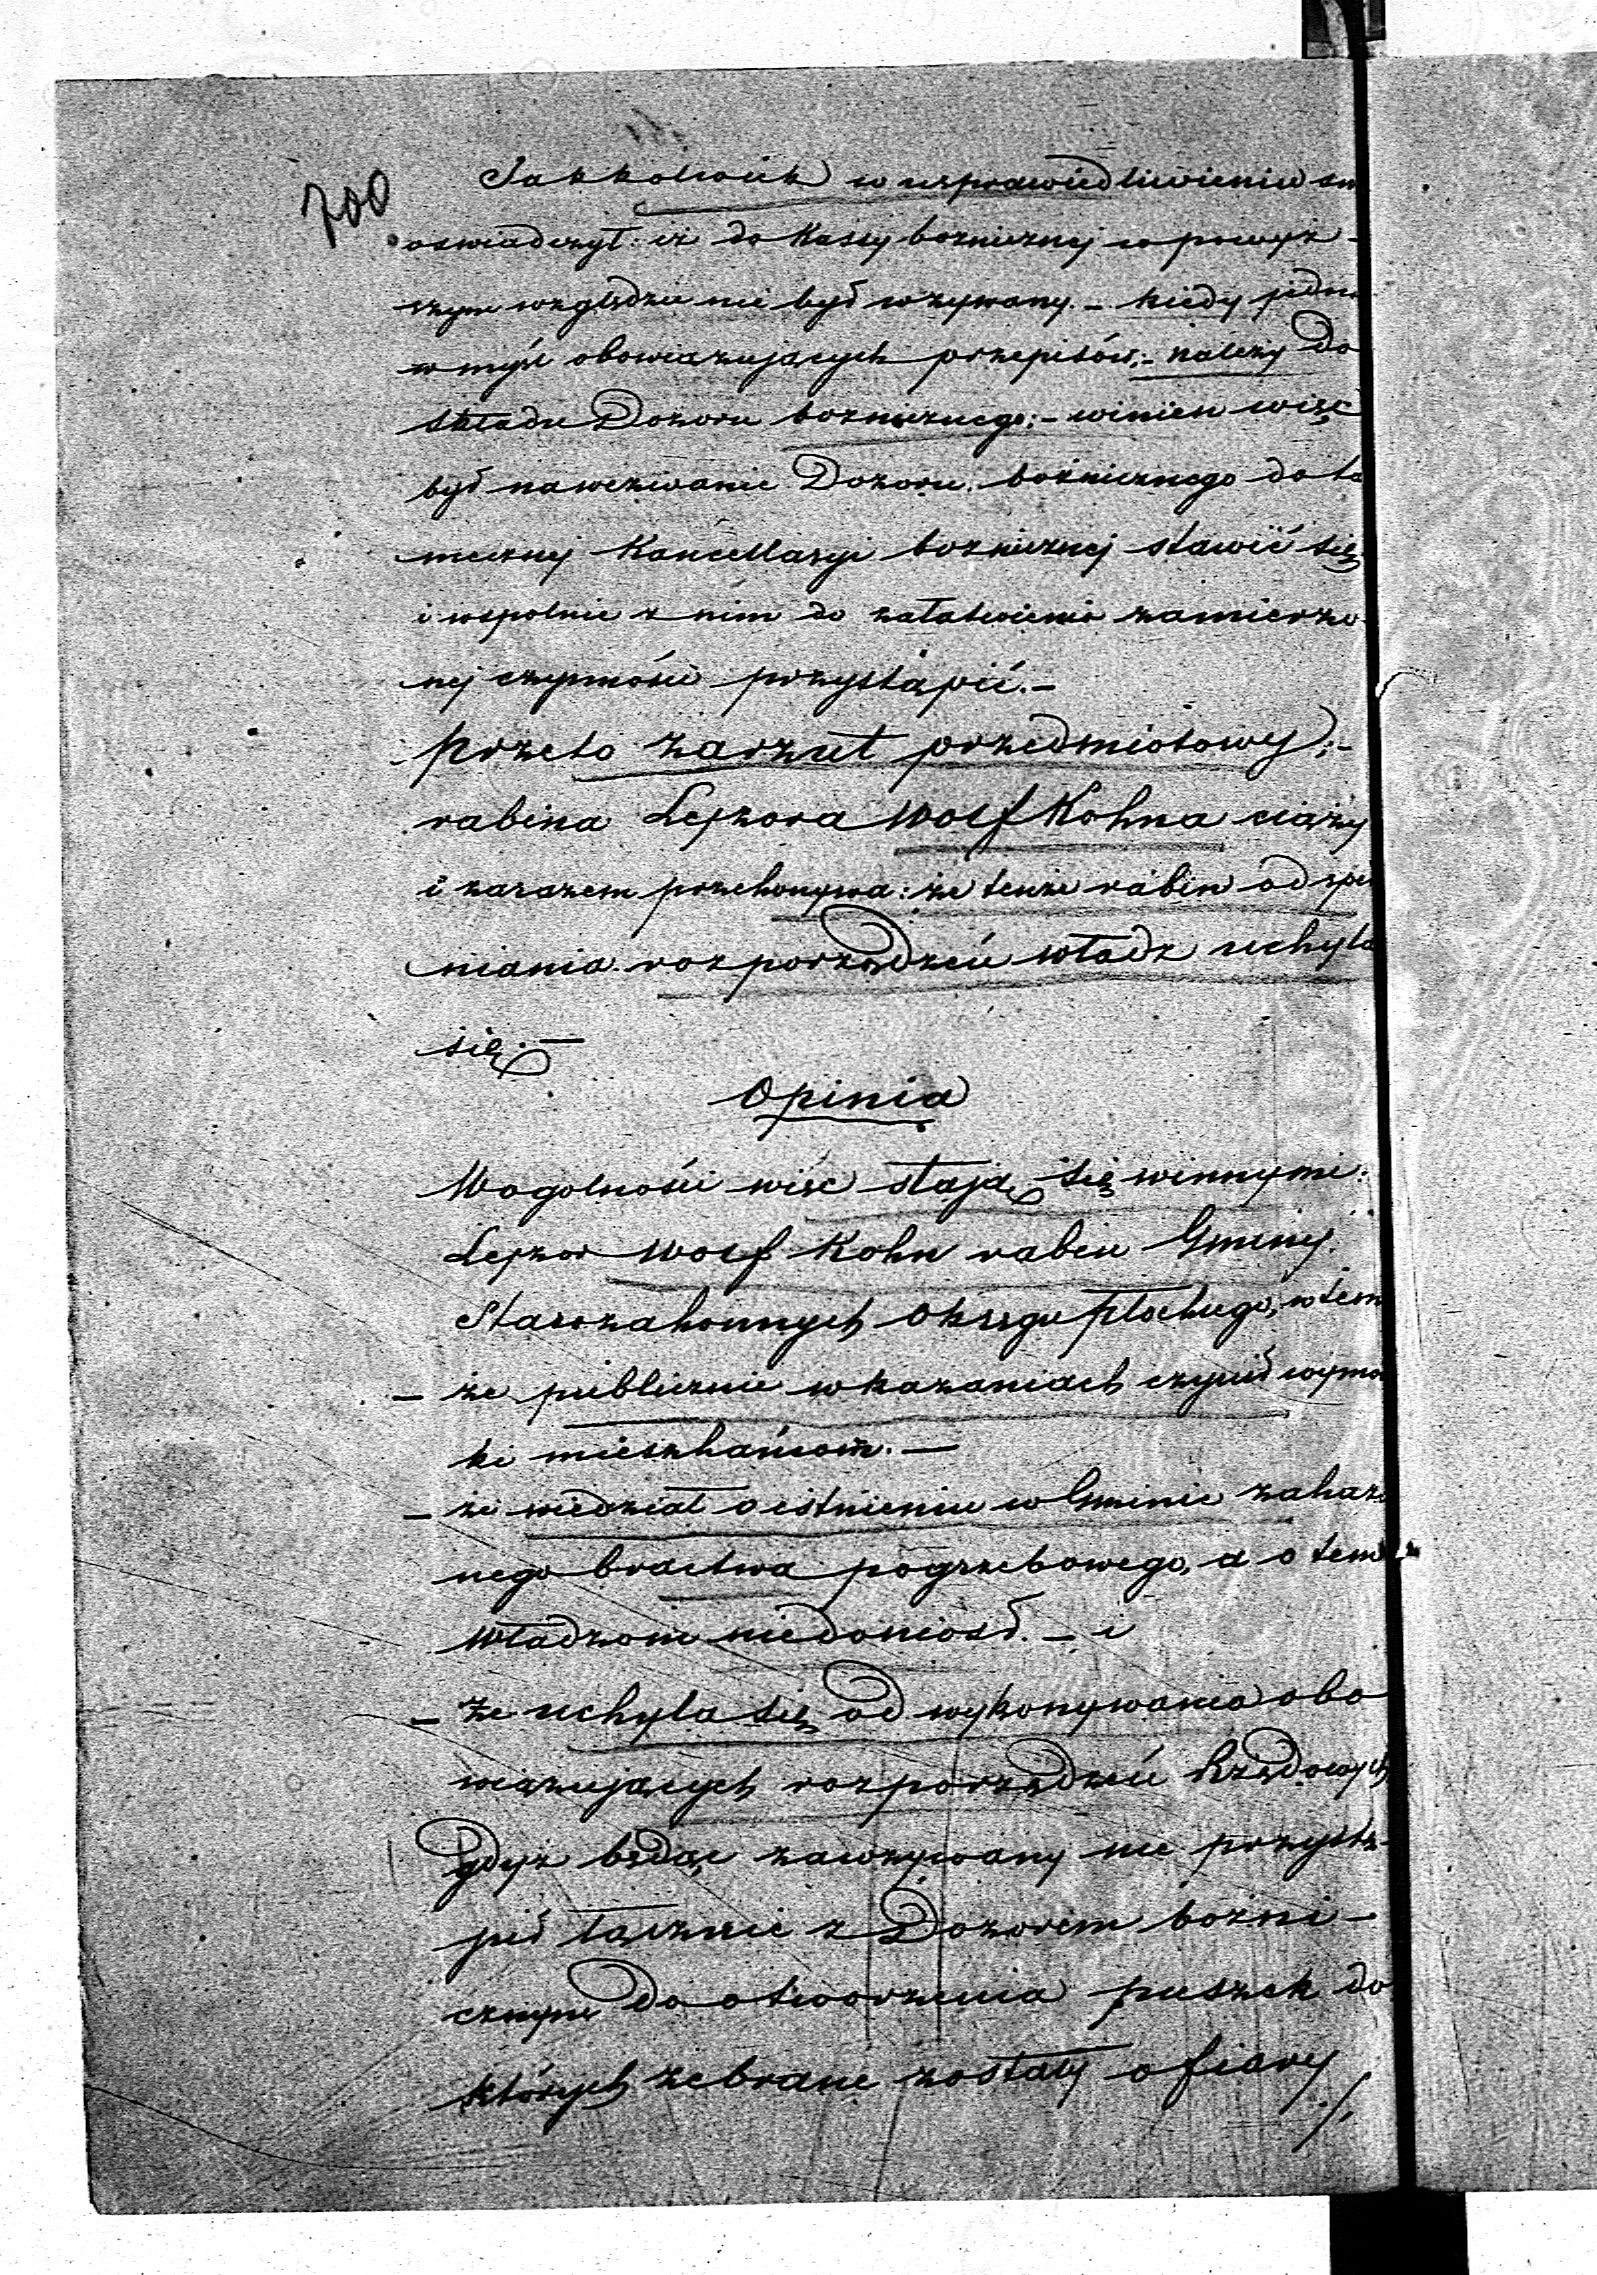 700
Jakkolwiek w usprawiedliwieniu sw
oswiadczył: iż do Kassy boznicznej w powyż-
szym względzie nie był wzywany. – kiedy jedna
w myśl obowiązujących przepisów, – należy do
składu Dozoru boznicznego; – winien więc
był na wezwanie Dozoru bożnicznego do ta
mecznej Kancellaryi boznicznej stawić się
i wspolnie z nim do załatwienia zamierzo
nej czynności przystąpić. –
przeto zarzut przedmiotowy; –
rabina Lejzora Wolf Kohna ciąży
i zarazem przekonywa: że tenże rabin od speł
niania rozporządzeń władz uchyla
się. –
Opinia
Wogolności więc stają się winnymi:
Lejzor Wolf Kohn rabin Gminy
Starozakonnych Okręgu Płockiego, w tem
– że publicznie w kazaniach czynił wymo
ki mieszkańcom. –
– że wiedział o istnieniu w Gminie zakaza
nego bractwa pogrzebowego, a o tem
Władzom nie doniosł. – i
– że uchyla się od wykonywania obo
wiązujących rozporządzeń Rządowych
gdyż będąc zawzywany nie przystą-
pił łącznie z Dozorem bożni-
cznym do otworzenia puszek do
których zebrane zostały ofiary
./.